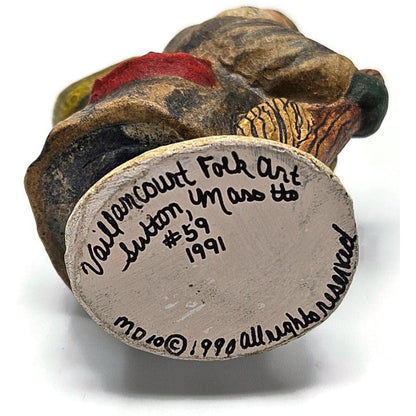 Vaillancourt Folk Art
Sutton, Mass
#59
1991
MD10 © 1990 All rights reserved